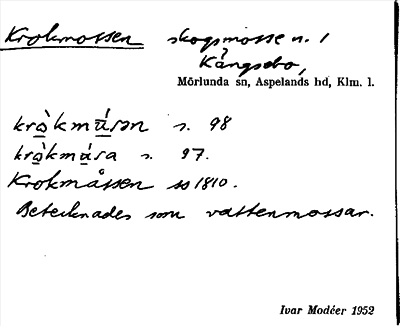 Krokmossen skogsmosse n. 1
Kångsebo,
Mörlunda sn, Aspelands hd, Klm. l.
krò̱kmū́sən s. 98
krò̱kmúsa s. 97.
Krokmåssen ss 1810.
Betecknades som vattenmossar.
Ivar Modéer 1952